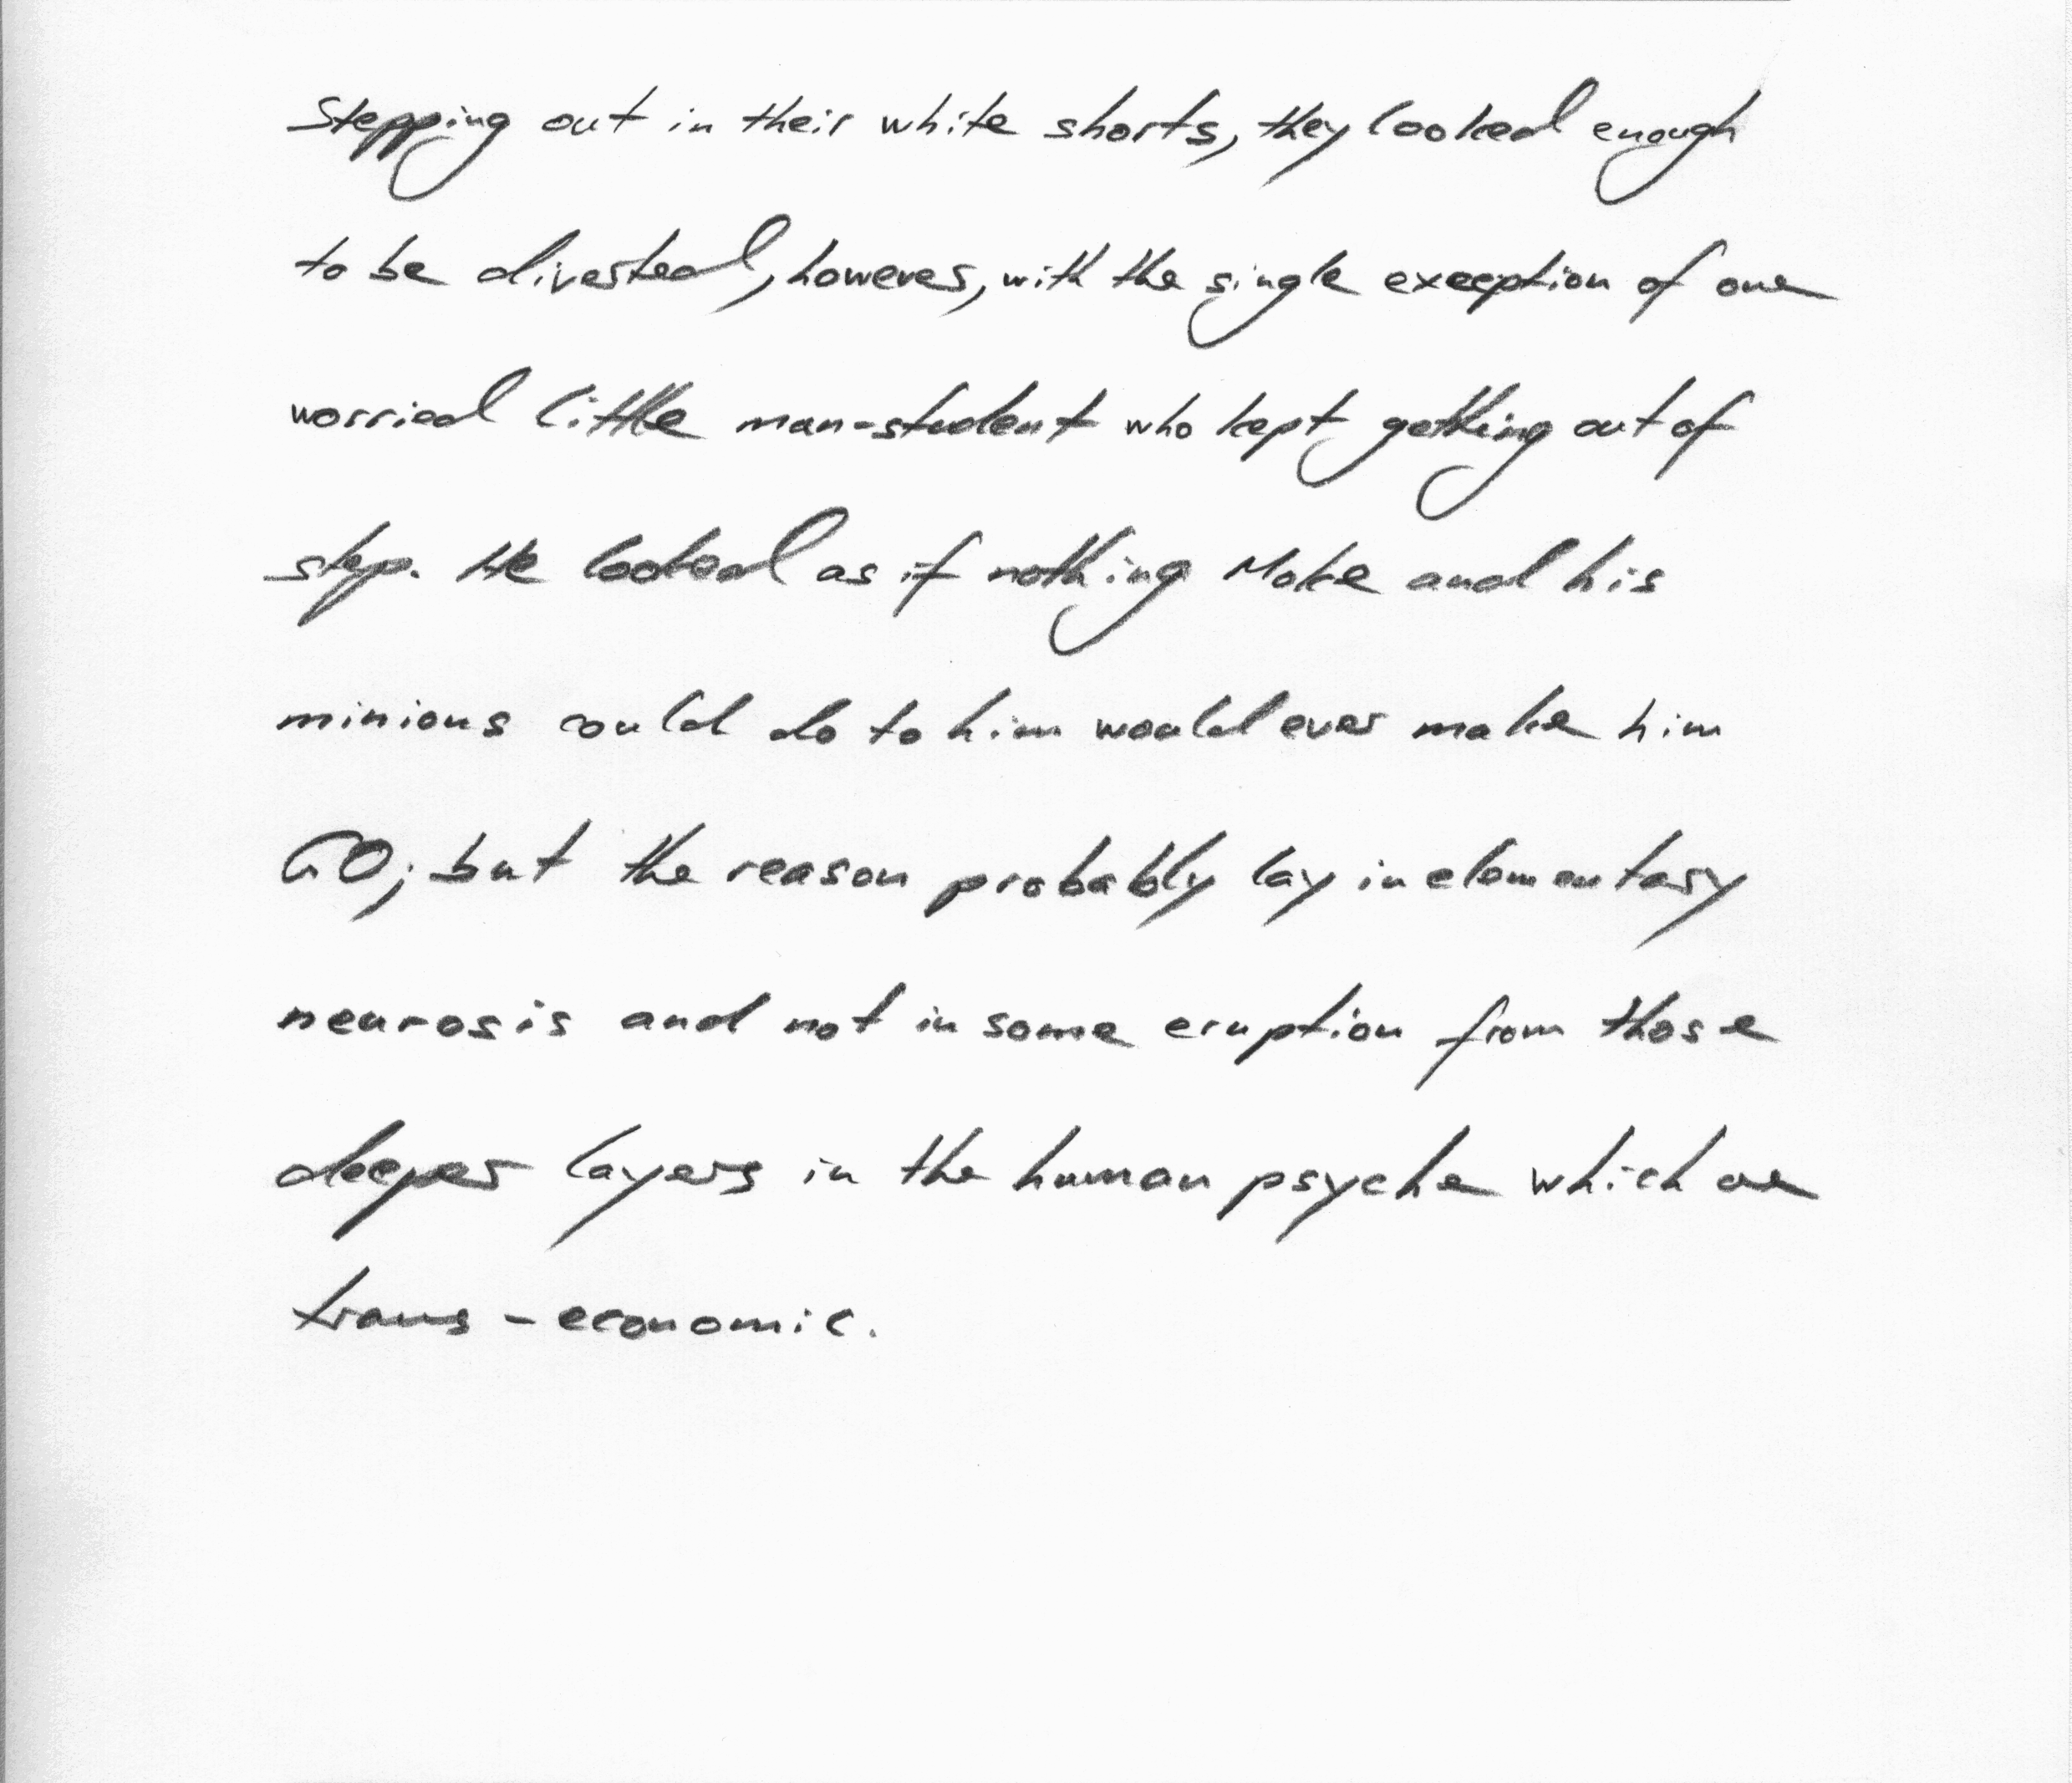 Stepping out in their white shorts, they looked enough
to be divested, however, with the single exception of one
worried little man-student who kept getting out of
step. He looked as if nothing Moke and his
minions could do to him would ever make him
GO; but the reason probably lay in elementary
neurosis and not in some eruption from those
deeper layers in the human psyche which are
trans-economic.